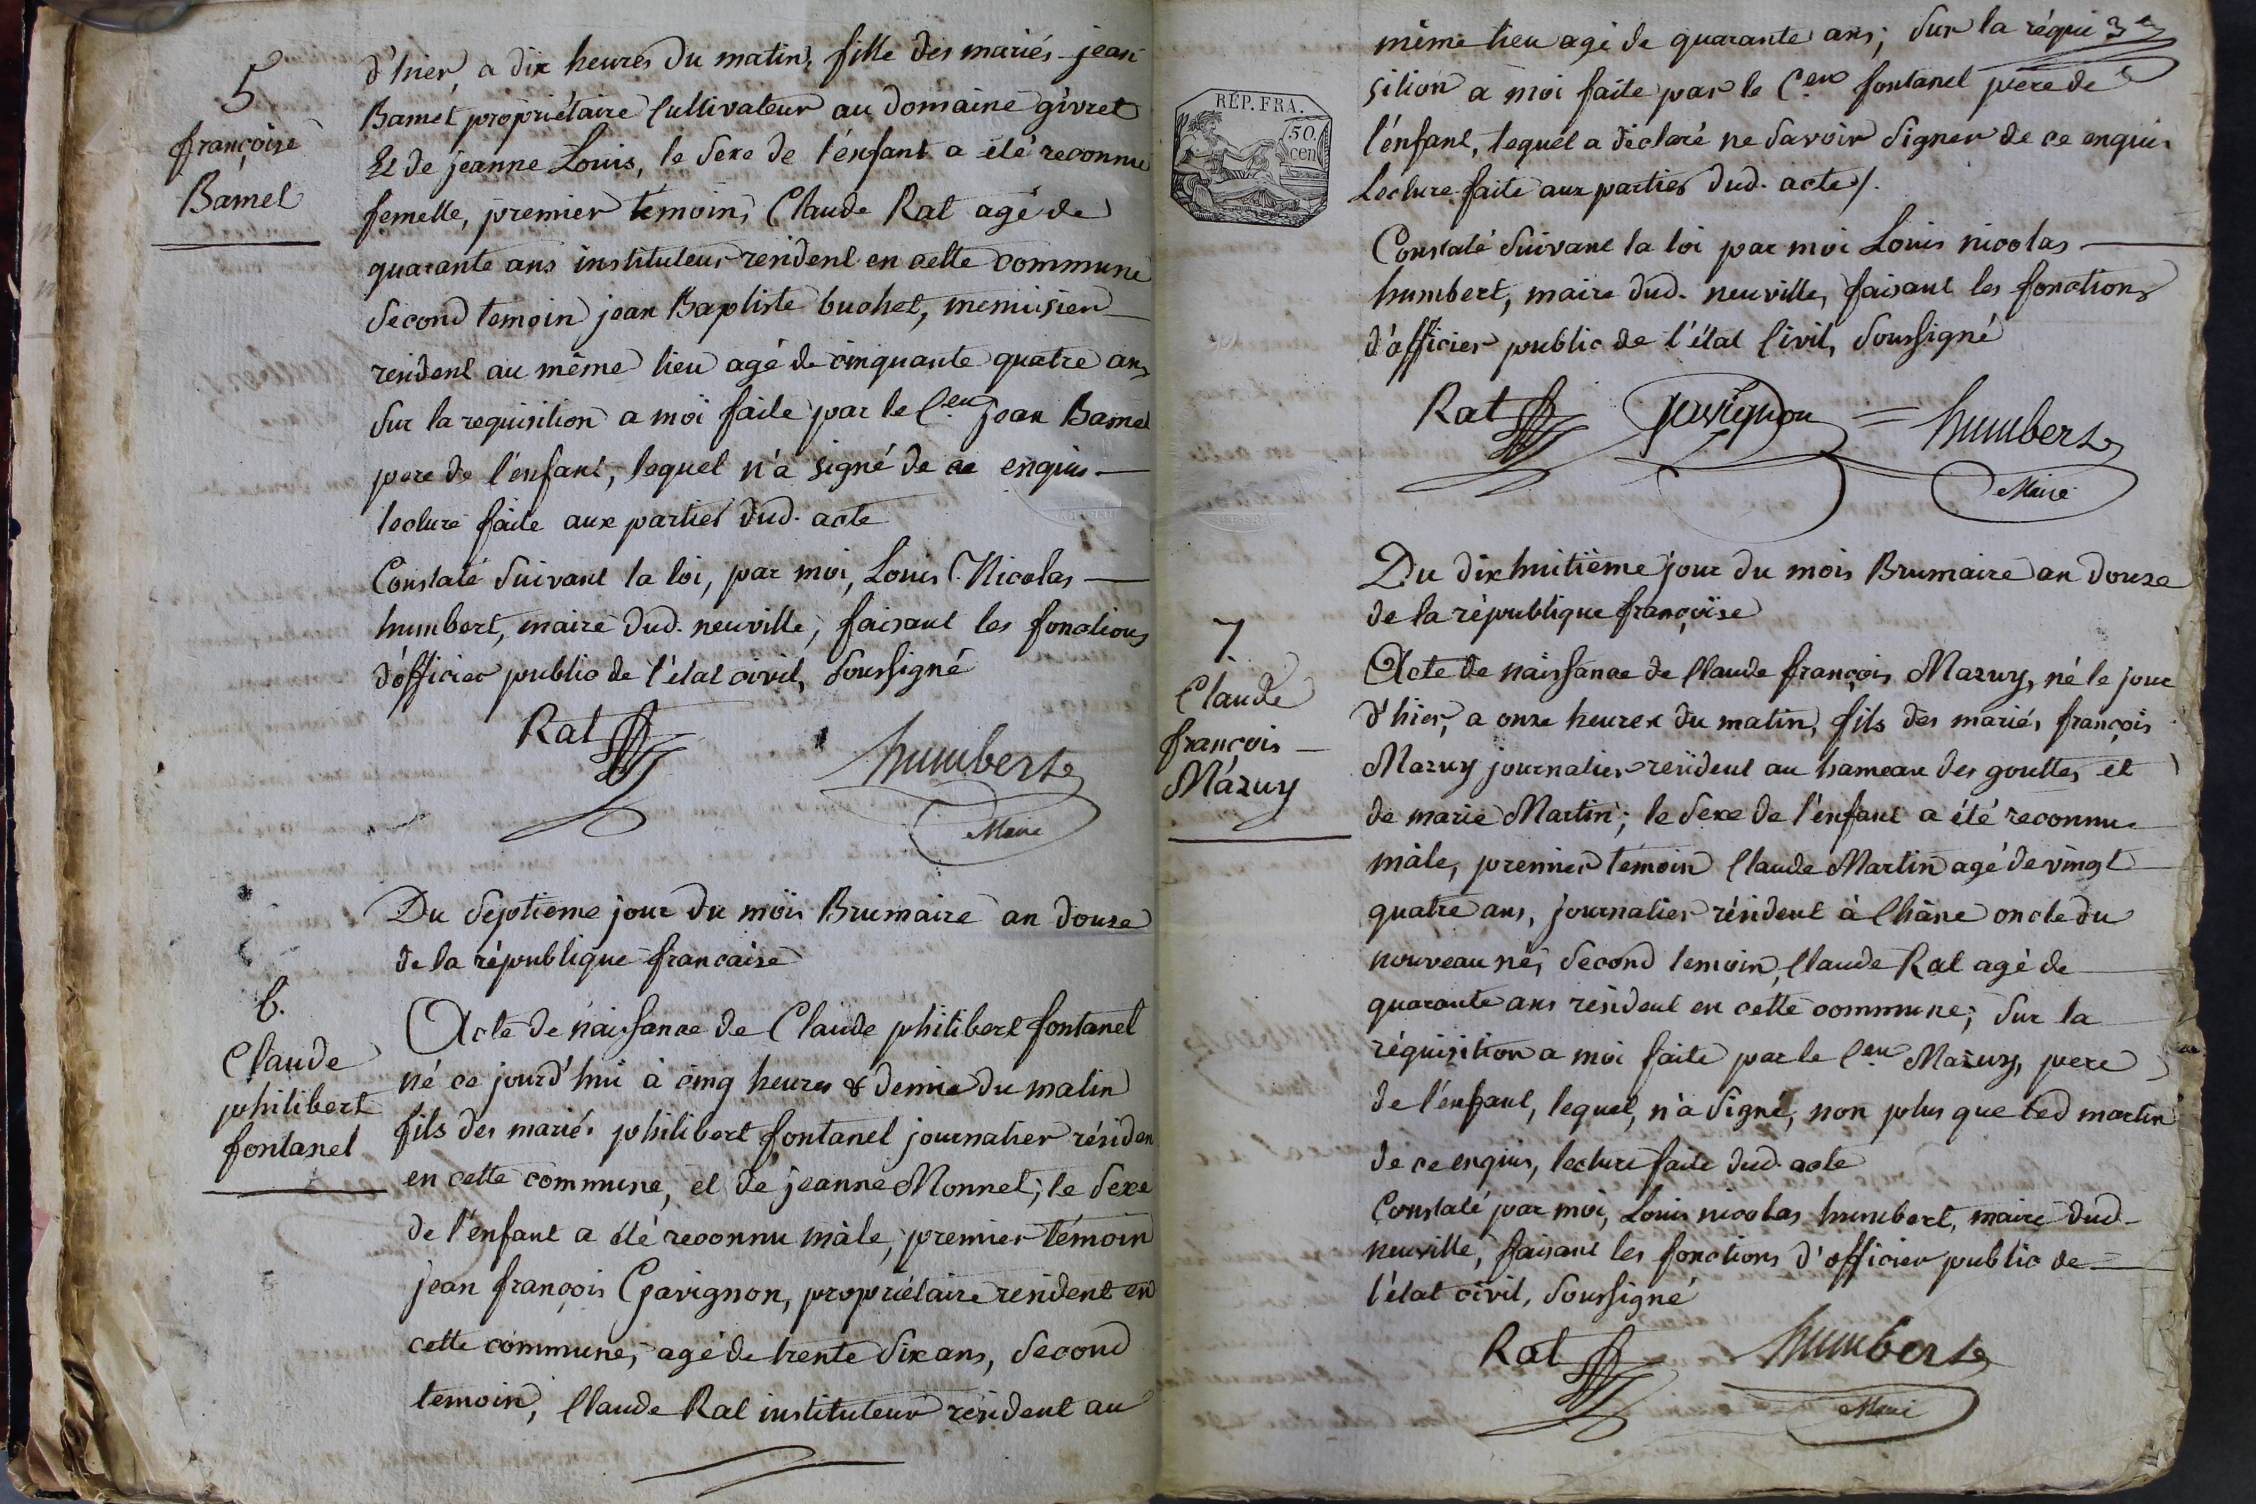 5
françoise
Bamet
d'hier a dix heures du matin, fille des mariés jean
Bamet propriétaire Cultivateur au domaine givret
Et de jeanne Louis, le sexe de l'énfant a été reconnu
femelle, premier témoin, Claude Rat agé de
quarante ans instituteur resident en cette commune
second temoin jean Baptiste buchet, menuisier
resident au même lieu agé de cinquante quatre ans
sur la requisition a moi faite par le C.en jean Bamet
pere de l'enfant, lequel n'a signé de ce enquis
lecture faite aux parties dud. acte
Constaté suivant la loi, par moi, Louis Nicolas
humbert, maire dud. neuville, faisant les fonctions
d'officier public de l'état civil, soussigné
Rat humbert
Maire
Du septieme jour du mois Brumaire an douze
de la république francaise
6.
Claude
philibert
fontanel
Acte de naissance de Claude philibert fontanel
né ce jourd'hui à cinq heures & demie du matin
fils des mariés philibert fontanel journalier résiden
en cette commune, et de jeanne Monnet; le sexe
de l'enfant a été reconnu mâle, premier témoin
jean françois Gavignon, propriétaire resident en
cette commune, agé de trente six ans, second
temoin, Claude Rat instituteur résident au
3e
même lieu agé de quarante ans; sur la réqui
sition a moi faite par le C.en fontanel pere de
l'énfant, lequel a déclaré ne savoir signer de ce enquis
Lecture faite aux parties dud. acte/.
RÉP. FRA.
50.
cen
Constaté suivant la loi par moi Louis nicolas
humbert, maire dud. neuville, faisant les fonctions
d'officier public de l'état Civil, soussigné
Rat gavignon humbert
Maire
Du dix huitième jour du mois Brumaire an douze
de la république françoise
7
Claude
françois
Mazuy
Acte de naissance de Claude françois Mazuy, né le jour
d'hier, a onze heures du matin, fils des mariés françois
Mazuy journalier résident au hameau des gouttes et
de marie Martin; le sexe de l'énfant a été reconnu
mâle, premier témoin Claude Martin agé de vingt
quatre ans, journalier résident à Châne oncle du
nouveau né, second temoin, Claude Rat agé de
quarante ans résident en cette commune; sur la
réquisition a moi faite par le C.en Mazuy, pere
de l'énfant, lequel, n'a signé, non plus que led martin
de ce enquis, lecture faite dud. acte
Constaté par moi, Louis nicolas humbert, maire dud.
neuville, faisant les fonctions d'officier public de
l'état civil, soussigné
Rat humbert
Maire